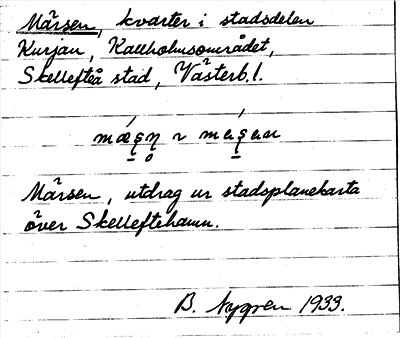 Mårsen, kvarter i stadsdelen
Kurjan, Kallholmsområdet,
Skellefteå stad, Västerb. l.
Mårsen, utdrag ur stadsplanekarta
över Skelleftehamn.
B. Nygren 1933.